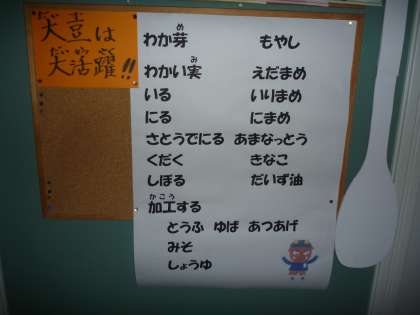 大豆は
大活躍!!
わか芽 もやし
わかい実 えだまめ
いる いりまめ
にる にまめ
さとうでにる あまなっとう
くだく きなこ
しぼる だいず油
加工する
とうふ ゆば あつあげ
みそ
しょうゆ